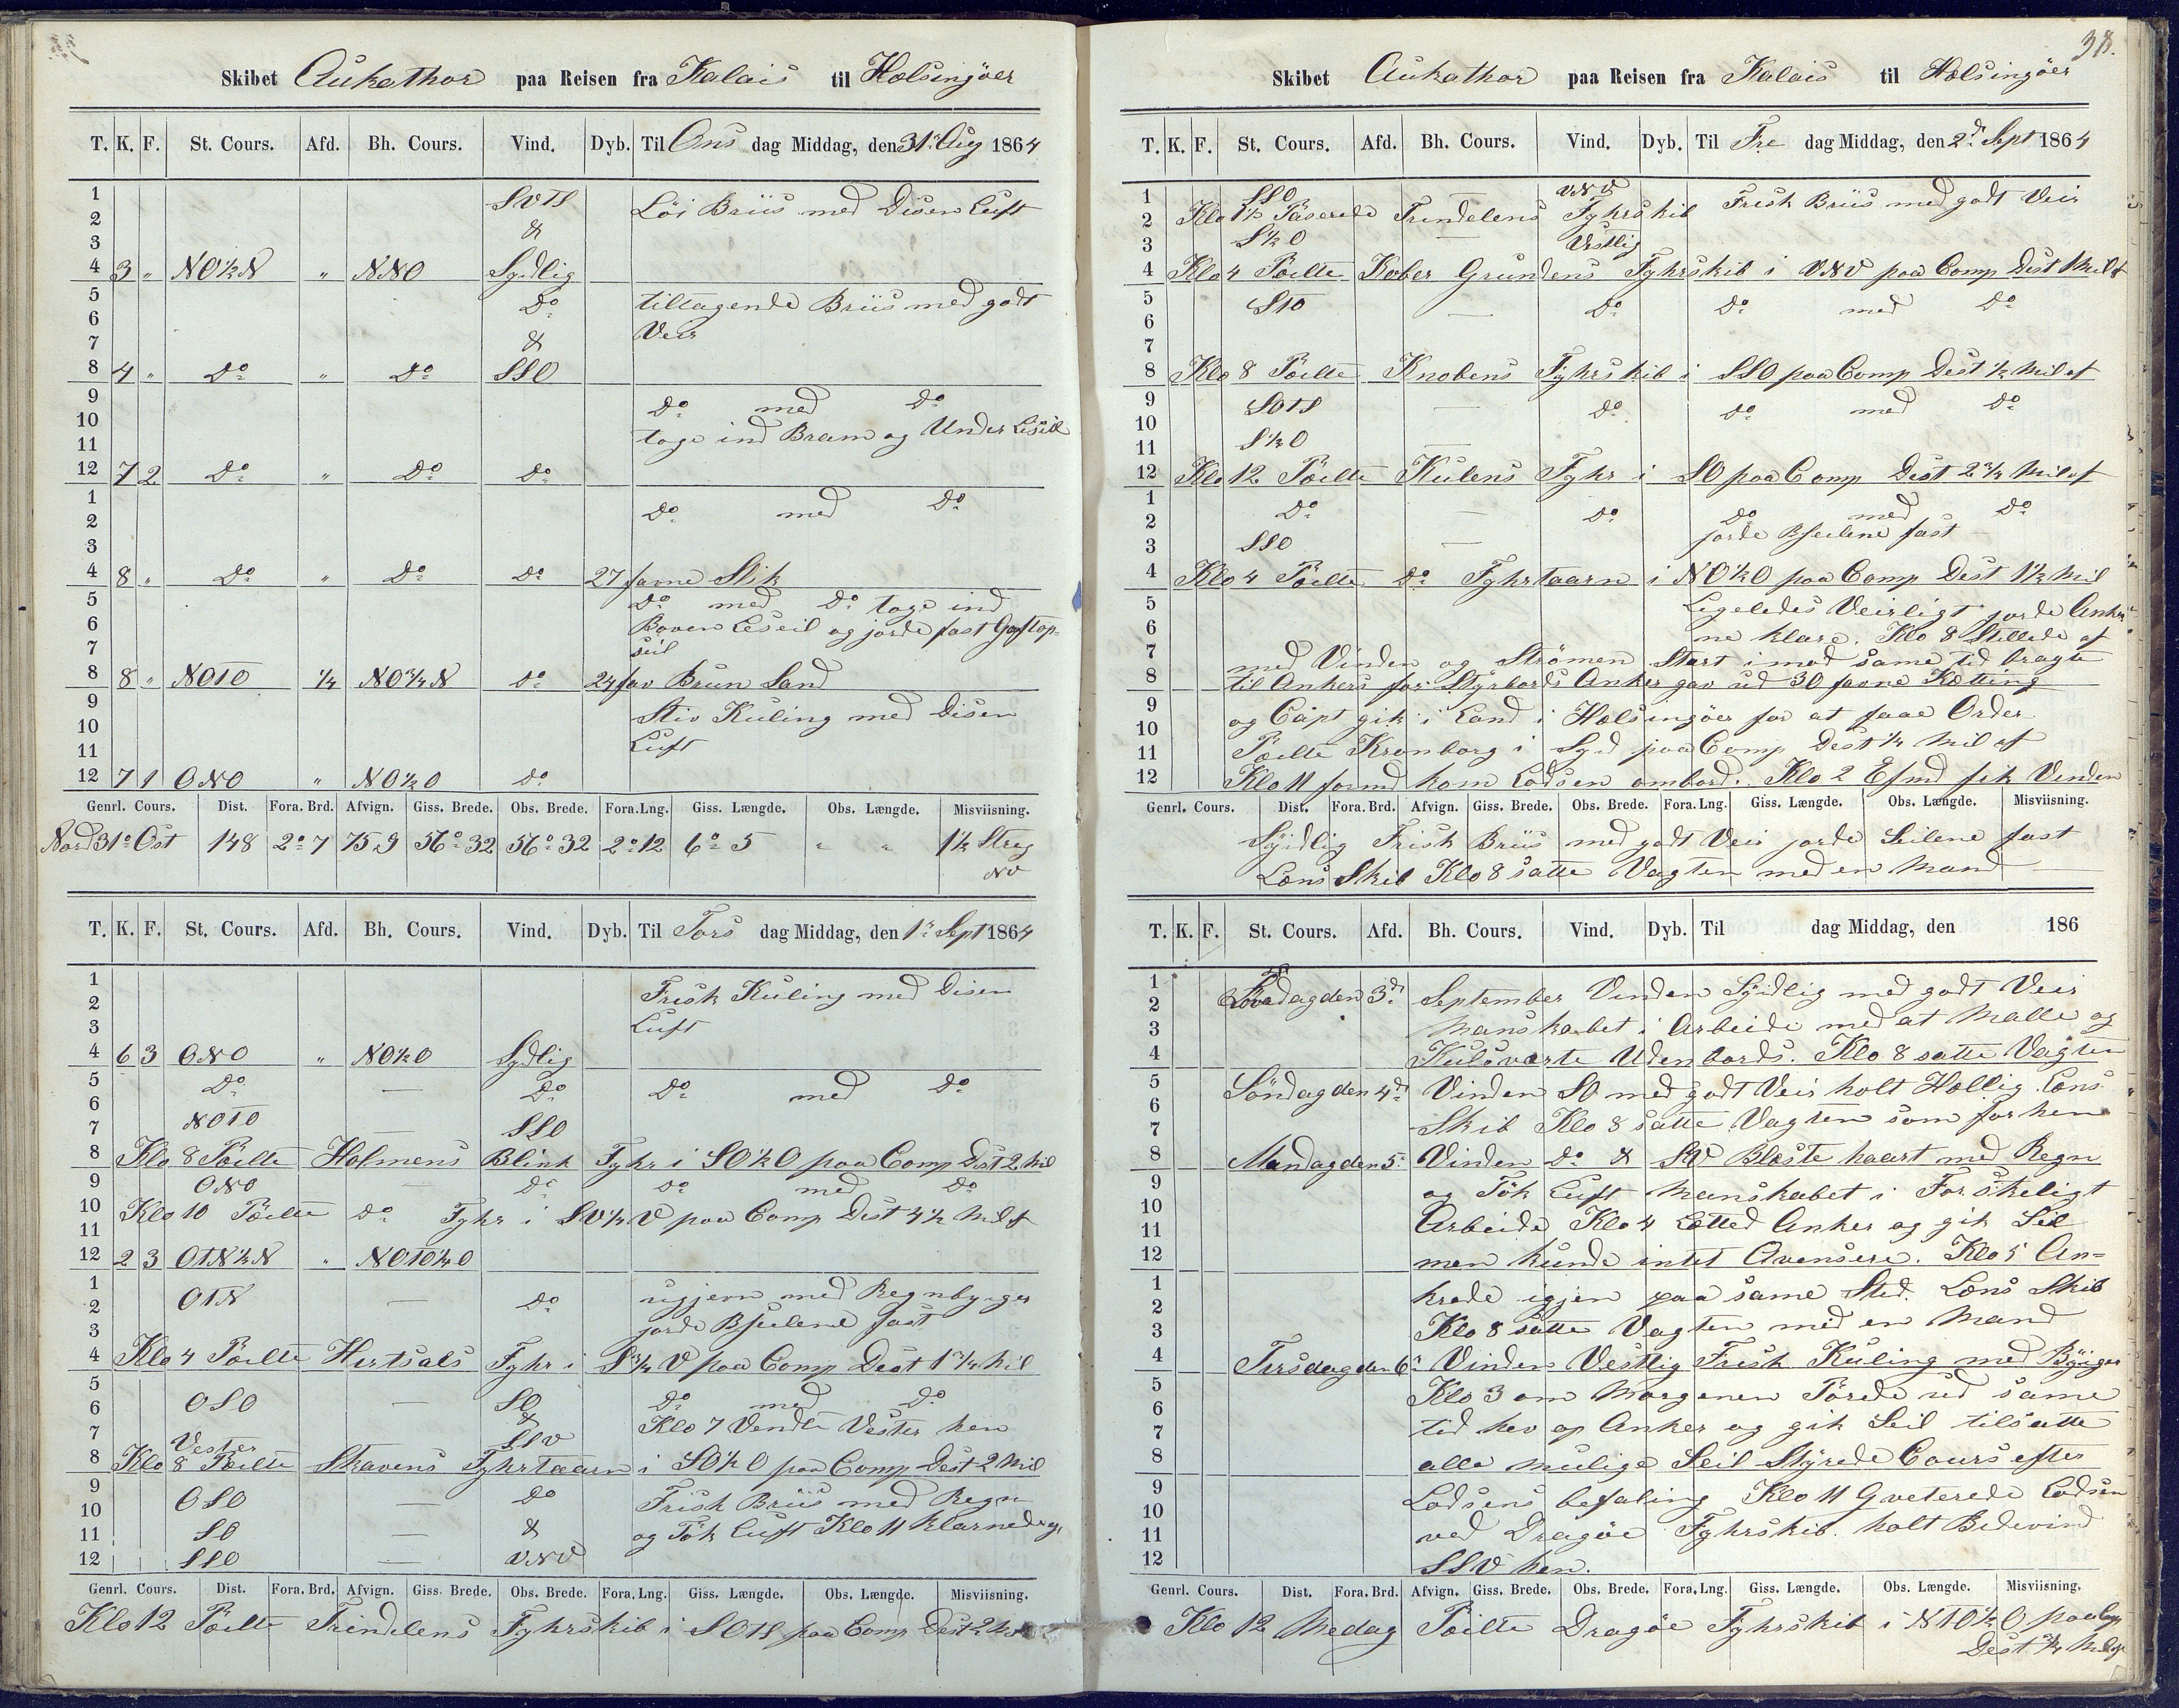 Skibet Aukathor paa Reisen fra Kalais til Helsingöer
T. K. F. St. Cours. Afd. Bh. Cours. Vind. Dyb. Til Ons dag Middag, den 31' Aug 1864
1 SVTS Löi Briis med Disen Luft
2 &
3
4 3 " NO½N " NNO Sydlig
5 Do tiltagende Briis med godt
6
7 & Veir
8 4 " Do " Do SSO
9 Do med Do
10 toge ind Bram og Under Leseil
11
12 7 2 Do " Do Do
1 Do med Do
2
3
4 8 " Do " Do Do 27 favne Slik
5 Do med Do toge ind
6 Boven Leseil og jorde fast Gaftop=
7 seil
8 8 " NOTO ¼ NO¾N Do 24 fav Brun Sand
9 Stiv Kuling med Disen
10
11 Luft
12 7 1 ONO " NO½O Do
Genrl. Cours. Dist. Fora. Brd. Afvign. Giss. Brede. Obs. Brede. Fora. Lng. Giss. Længde. Obs. Længde. Misviisning.
Nord 31° Ost 148 2° 7 75,9 56° 32 56° 32 2° 12 6° 5 " " 1½ Streg
NV
T. K. F. St. Cours. Afd. Bh. Cours. Vind. Dyb. Til Tors dag Middag, den 1' Sept 1864
1 Frisk Kuling med Disen
2
3 Luft
4 6 3 ONO " NO½O Sydlig
5 Do — Do Do med Do
6
7 NOTO — SSO
8 Klo 8 Poilte Holmens Blink Fyhr i SO½O paa Comp Dist 2 Mil
9 ONO — Do Do med Do
10 Klo 10 Poilte Do Fyhr i SV¼V paa Comp Dist 4½ Mil af
11
12 2 3 OTN½N " NOTO½O
1 OTN — Do ugjevn med Regnbyger
2
3 jorde Bseilene fast
4 Klo 4 Poilte Hirtsals Fyhr i S¾V paa Comp Dist 1¾ Mil
5 OSO — SO Do med Do
6 & Klo 7 Vendte Vester hen
7 Vester SSV
8 Klo 8 Poilte Skavens Fyhrtaarn i SO½O paa Comp Dest 2 Mil
9 OSO — Do Frisk Briis med Regn
10 SO — & og Tök Luft Klo 11 klarnede op
11
12 SSO — VNV
Genrl. Cours. Dist. Fora. Brd. Afvign. Giss. Brede. Obs. Brede. Fora. Lng. Giss. Længde. Obs. Længde. Misviisning.
Klo 12 Poilte Trindelens Fyhrskib i SOTS paa Comp Dest 2 Mil
38.
Skibet Aukathor paa Reisen fra Kalais til Helsingöer
T. K. F. St. Cours. Afd. Bh. Cours. Vind. Dyb. Til Fre dag Middag, den 2d Sept 1864
1 SSO VNV Frisk Briis med godt Veir
2 Klo 1½ Paserede Trindelens Fyhrskib
3 S½O — Vestlig
4 Klo 4 Poilte Kober Grundens Fyhrskib i VNV paa Comp Dist 1 Mil af
5 STO — Do Do med Do
6
7
8 Klo 8 Poilte Knobens Fyhrskib i SSO paa Comp Dest ½ Mil af
9 SOTS — Do Do med Do
10
11 S½O —
12 Klo 12 Poilte Kulens Fyhr i SO paa Comp Dest 2¾ Mil af
1 Do — Do Do med Do
2 jorde Bseilene fast
3 SSO —
4 Klo 4 Poilte Do Fyhrtaarn i NO½O paa Comp Dest 1½ Mil
5 Ligeledes Veirligt jorde Anker
6 ne klare. Klo 8 Stillede af
7 med Vinden og Strömen Start imod same tid bragte
8 til Ankers for Styrbords Anker gav ud 30 favne Ketting
9 og Capt gik i Land i Helsingöer for at faae Order
10
11 Poilte Kronborg i Syd paa Comp Dest ¼ Mil af
12 Klo 11 formd kom Lodsen ombord. Klo 2 Efmd fik Vinden
Genrl. Cours. Dist. Fora. Brd. Afvign. Giss. Brede. Obs. Brede. Fora. Lng. Giss. Længde. Obs. Længde. Misviisning.
Sydlig Frisk Briis med godt Veir jorde Seilene fast
Lens Skib Klo 8 satte Vagten med en Mand —
T. K. F. St. Cours. Afd. Bh. Cours. Vind. Dyb. Til dag Middag, den 186
1 Löverdag den 3d September Vinden Sydlig med godt Veir
2
3 Manskabet i Arbeide med at Malle og
4 Kulsvarte Uden bords. Klo 8 satte Vagten
5 Söndag den 4d Vinden SO med godt Veir holt Hellig. Lens
6
7 Skib Klo 8 satte Vagten som forhen
8 Mandag den 5' Vinden Do & SV Bleste haart med Regn
9 og Tök Luft Manskabet i Forskeligt
10
11 Arbeide Klo 4 Letted Anker og gik Seil
12 men kunde intet Avensere. Klo 5 An=
1 krede igjen paa same Sted. Lens Skib
2
3 Klo 8 satte Vagten med en Mand
4 Tirsdag den 6' Vinden Vestlig Frisk Kuling med Byiger
5 Klo 3 om Morgenen Pörede ud same
6
7 tid hev op Anker og gik Seil tilsatte
8 alle mulige Seil Styrede Cours efter
9 Lodsens befaling Klo 11 Qveterede Lodsen
10
11 ved Dragöe Fyhrskib. holt Bedevind
12 SSV hen.
Genrl. Cours. Dist. Fora. Brd. Afvign. Giss. Brede. Obs. Brede. Fora. Lng. Giss. Længde. Obs. Længde. Misviisning.
Klo 12 Medag Poilte Dragöe Fyhrskib i NTO½O paa Comp
Dest ¾ Mil af